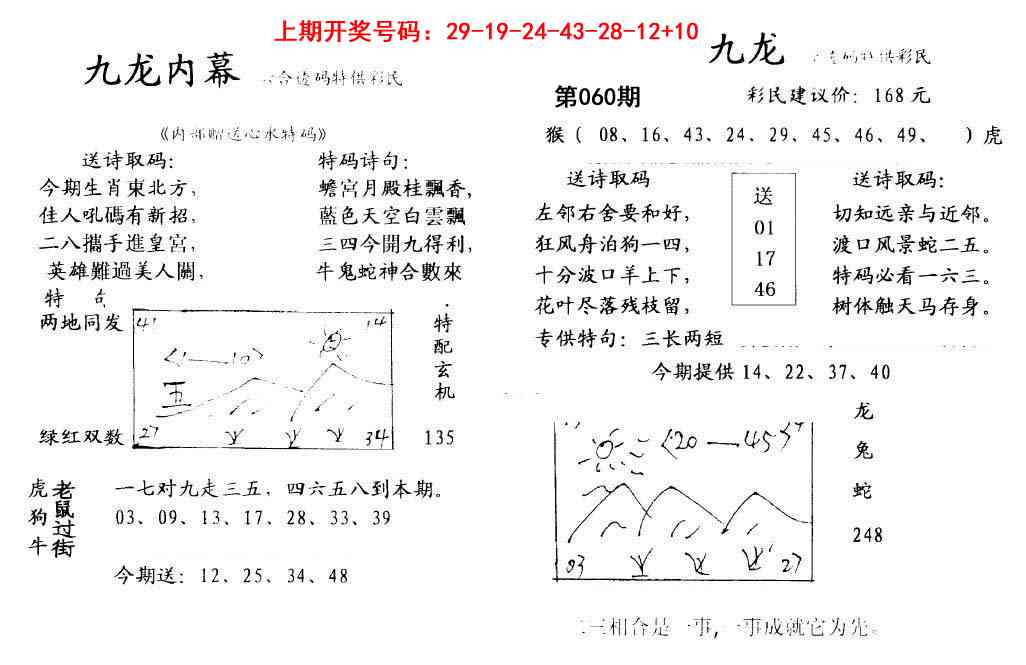 上期开奖号码：29-19-24-43-28-12+10
九龙内幕
合 码特供彩民
《内部赠送心水特码》
送诗取码：
今期生肖東北方，
佳人吼碼有新招，
二八攜手進皇宮，
英雄難過美人關，
特码诗句：
蟾宮月殿桂飄香，
藍色天空白雲飄
三四今開九得利，
牛鬼蛇神合數來
特
两地同发
绿红双数
41
14
<1——10>
五
27
34
特配玄机
135
虎狗牛
老鼠过街
一七对九走三五，四六五八到本期。
03、09、13、17、28、33、39
今期送：12、25、34、48
九龙
码特供彩民
第060期
彩民建议价：168元
猴（ 08、16、43、24、29、45、46、49、 ）虎
送诗取码
左邻右舍要和好，
狂风舟泊狗一四，
十分波口羊上下，
花叶尽落残枝留，
送
01
17
46
送诗取码：
切知远亲与近邻。
渡口风景蛇二五。
特码必看一六三。
树体触天马存身。
专供特句：三长两短
今期提供14、22、37、40
<20——45>
03
27
龙
兔
蛇
248
二三相合是一事，一事成就它为先。